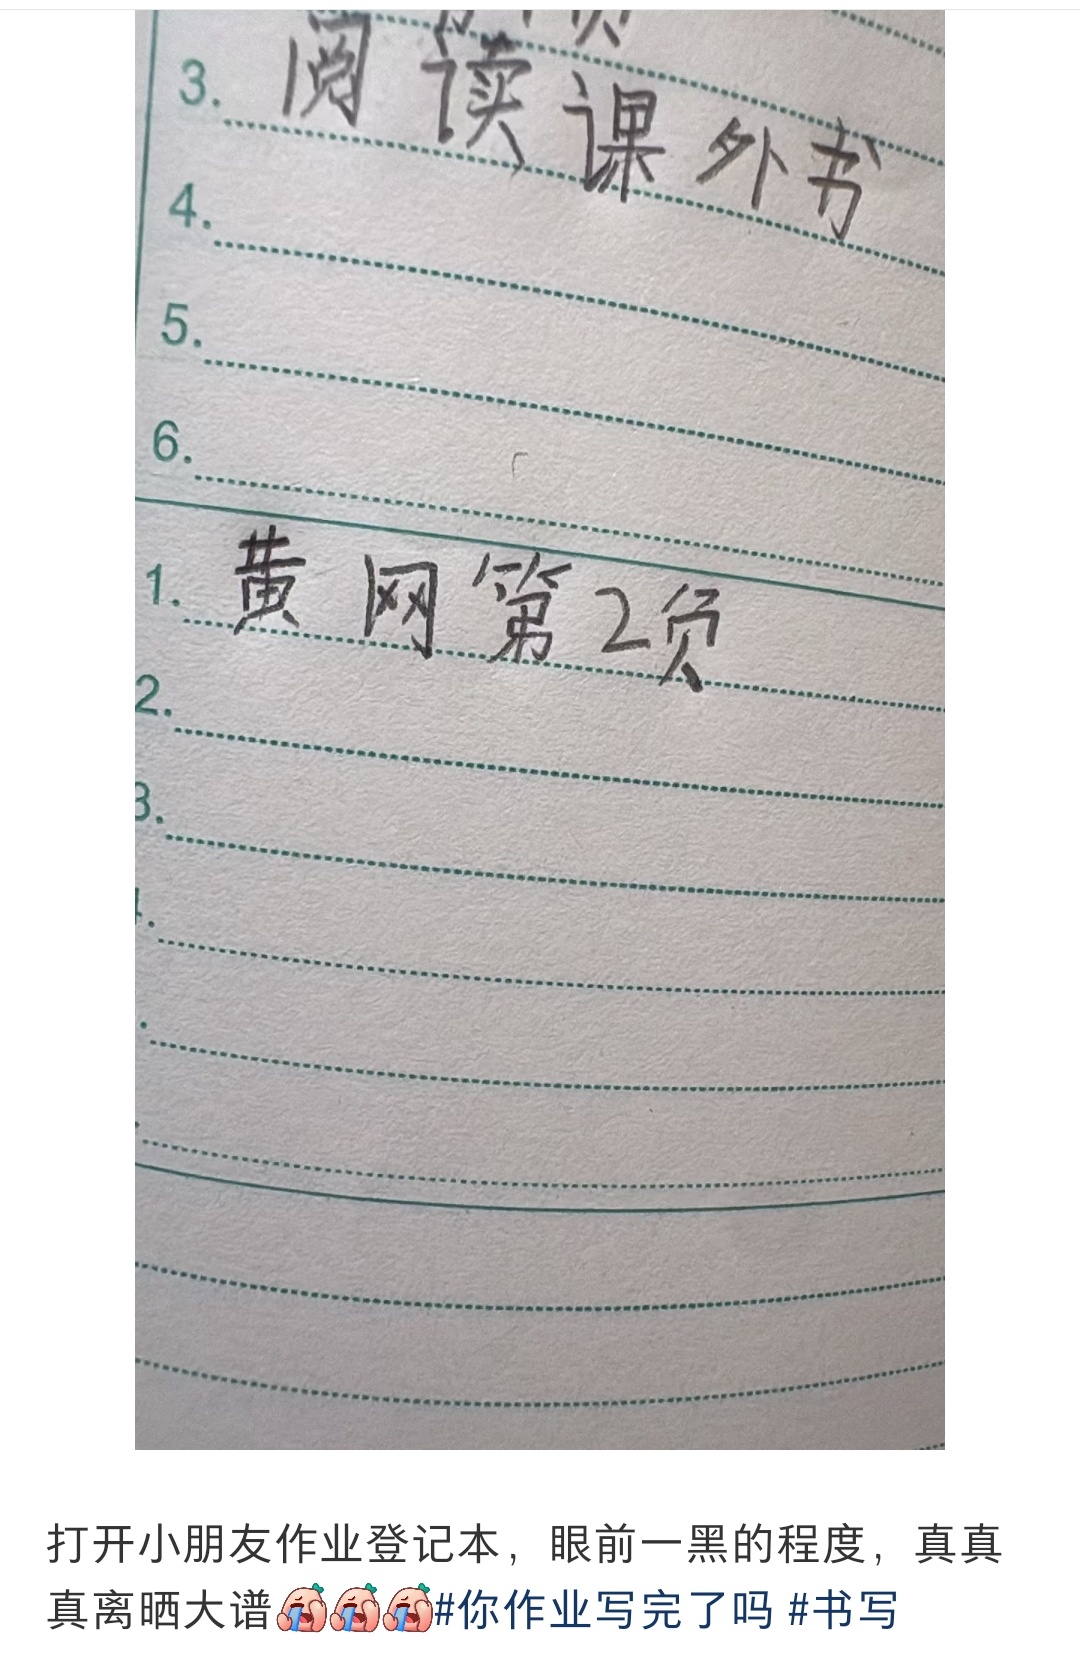 页
3. 阅读课外书
4.
5.
6.
1. 黄网第2页
2.
3.
打开小朋友作业登记本，眼前一黑的程度，真真
真离晒大谱#你作业写完了吗 #书写